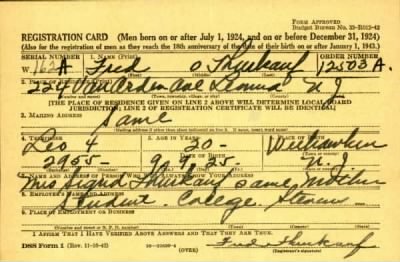 FORM APPROVED
Budget Bureau No. 33-R012-42
REGISTRATION CARD (Men born on or after July 1, 1924, and on or before December 31, 1924)
(Also for the registration of men as they reach the 18th anniversary of the date of their birth on or after January 1, 1943.)
SERIAL NUMBER
1. NAME (Print)
ORDER NUMBER
W 162A Fred O Thurkauf 12508A
(First) (Middle) (Last)
2. PLACE OF RESIDENCE (Print)
224 Van Orden Ave Leonia N J
(Number and street) (Town, township, village, or city) (County) (State)
[THE PLACE OF RESIDENCE GIVEN ON LINE 2 ABOVE WILL DETERMINE LOCAL BOARD
JURISDICTION; LINE 2 OF REGISTRATION CERTIFICATE WILL BE IDENTICAL]
3. MAILING ADDRESS
Same
(Mailing address if other than place indicated on line 2. If same, insert word same)
4. TELEPHONE
5. AGE IN YEARS
6. PLACE OF BIRTH
Leo 4 20 Weehawken
DATE OF BIRTH
2955 25 N.J.
7. NAME AND ADDRESS OF PERSON WHO WILL ALWAYS KNOW YOUR ADDRESS
Thurkauf same mother
8. EMPLOYER'S NAME AND ADDRESS
Student College
9. PLACE OF EMPLOYMENT OR BUSINESS
(Number and street or R. F. D. number) (Town) (County) (State)
I AFFIRM THAT I HAVE VERIFIED ABOVE ANSWERS AND THAT THEY ARE TRUE.
DSS Form 1 (Rev. 11-16-42) (OVER) Fred Thurkauf
(Registrant's signature)